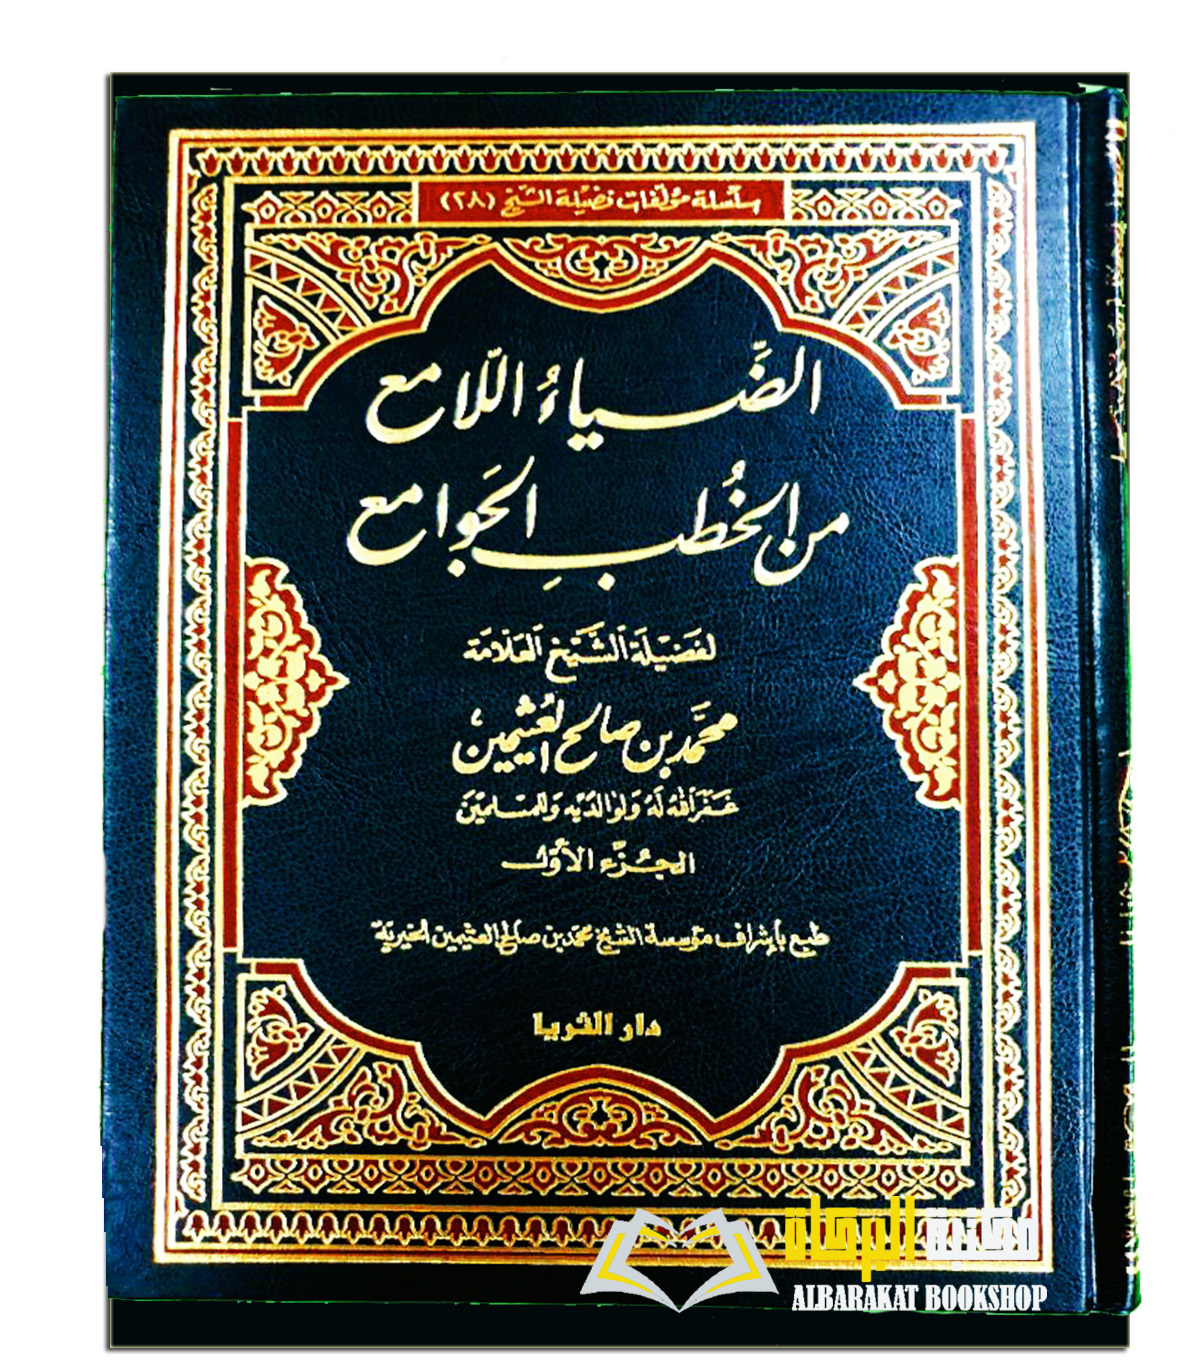 سلسلة مؤلفات فضيلة الشيخ (٢٨)
الضِّيَاءُ اللّامع
من الخُطبِ الجَوامع
لفَضيلَة الشَّيخ العَلّامَة
محمَّد بن صالح العُثيمين
غَفَر اللهُ لَهُ وَلوَالدَيْه وَللمُسلمِيْنَ
الجُزء الأوّل
طبع بإشراف مؤسسة الشيخ محمد بن صالح العثيمين الخيرية
دار الثريا
مكتبة البركات
ALBARAKAT BOOKSHOP